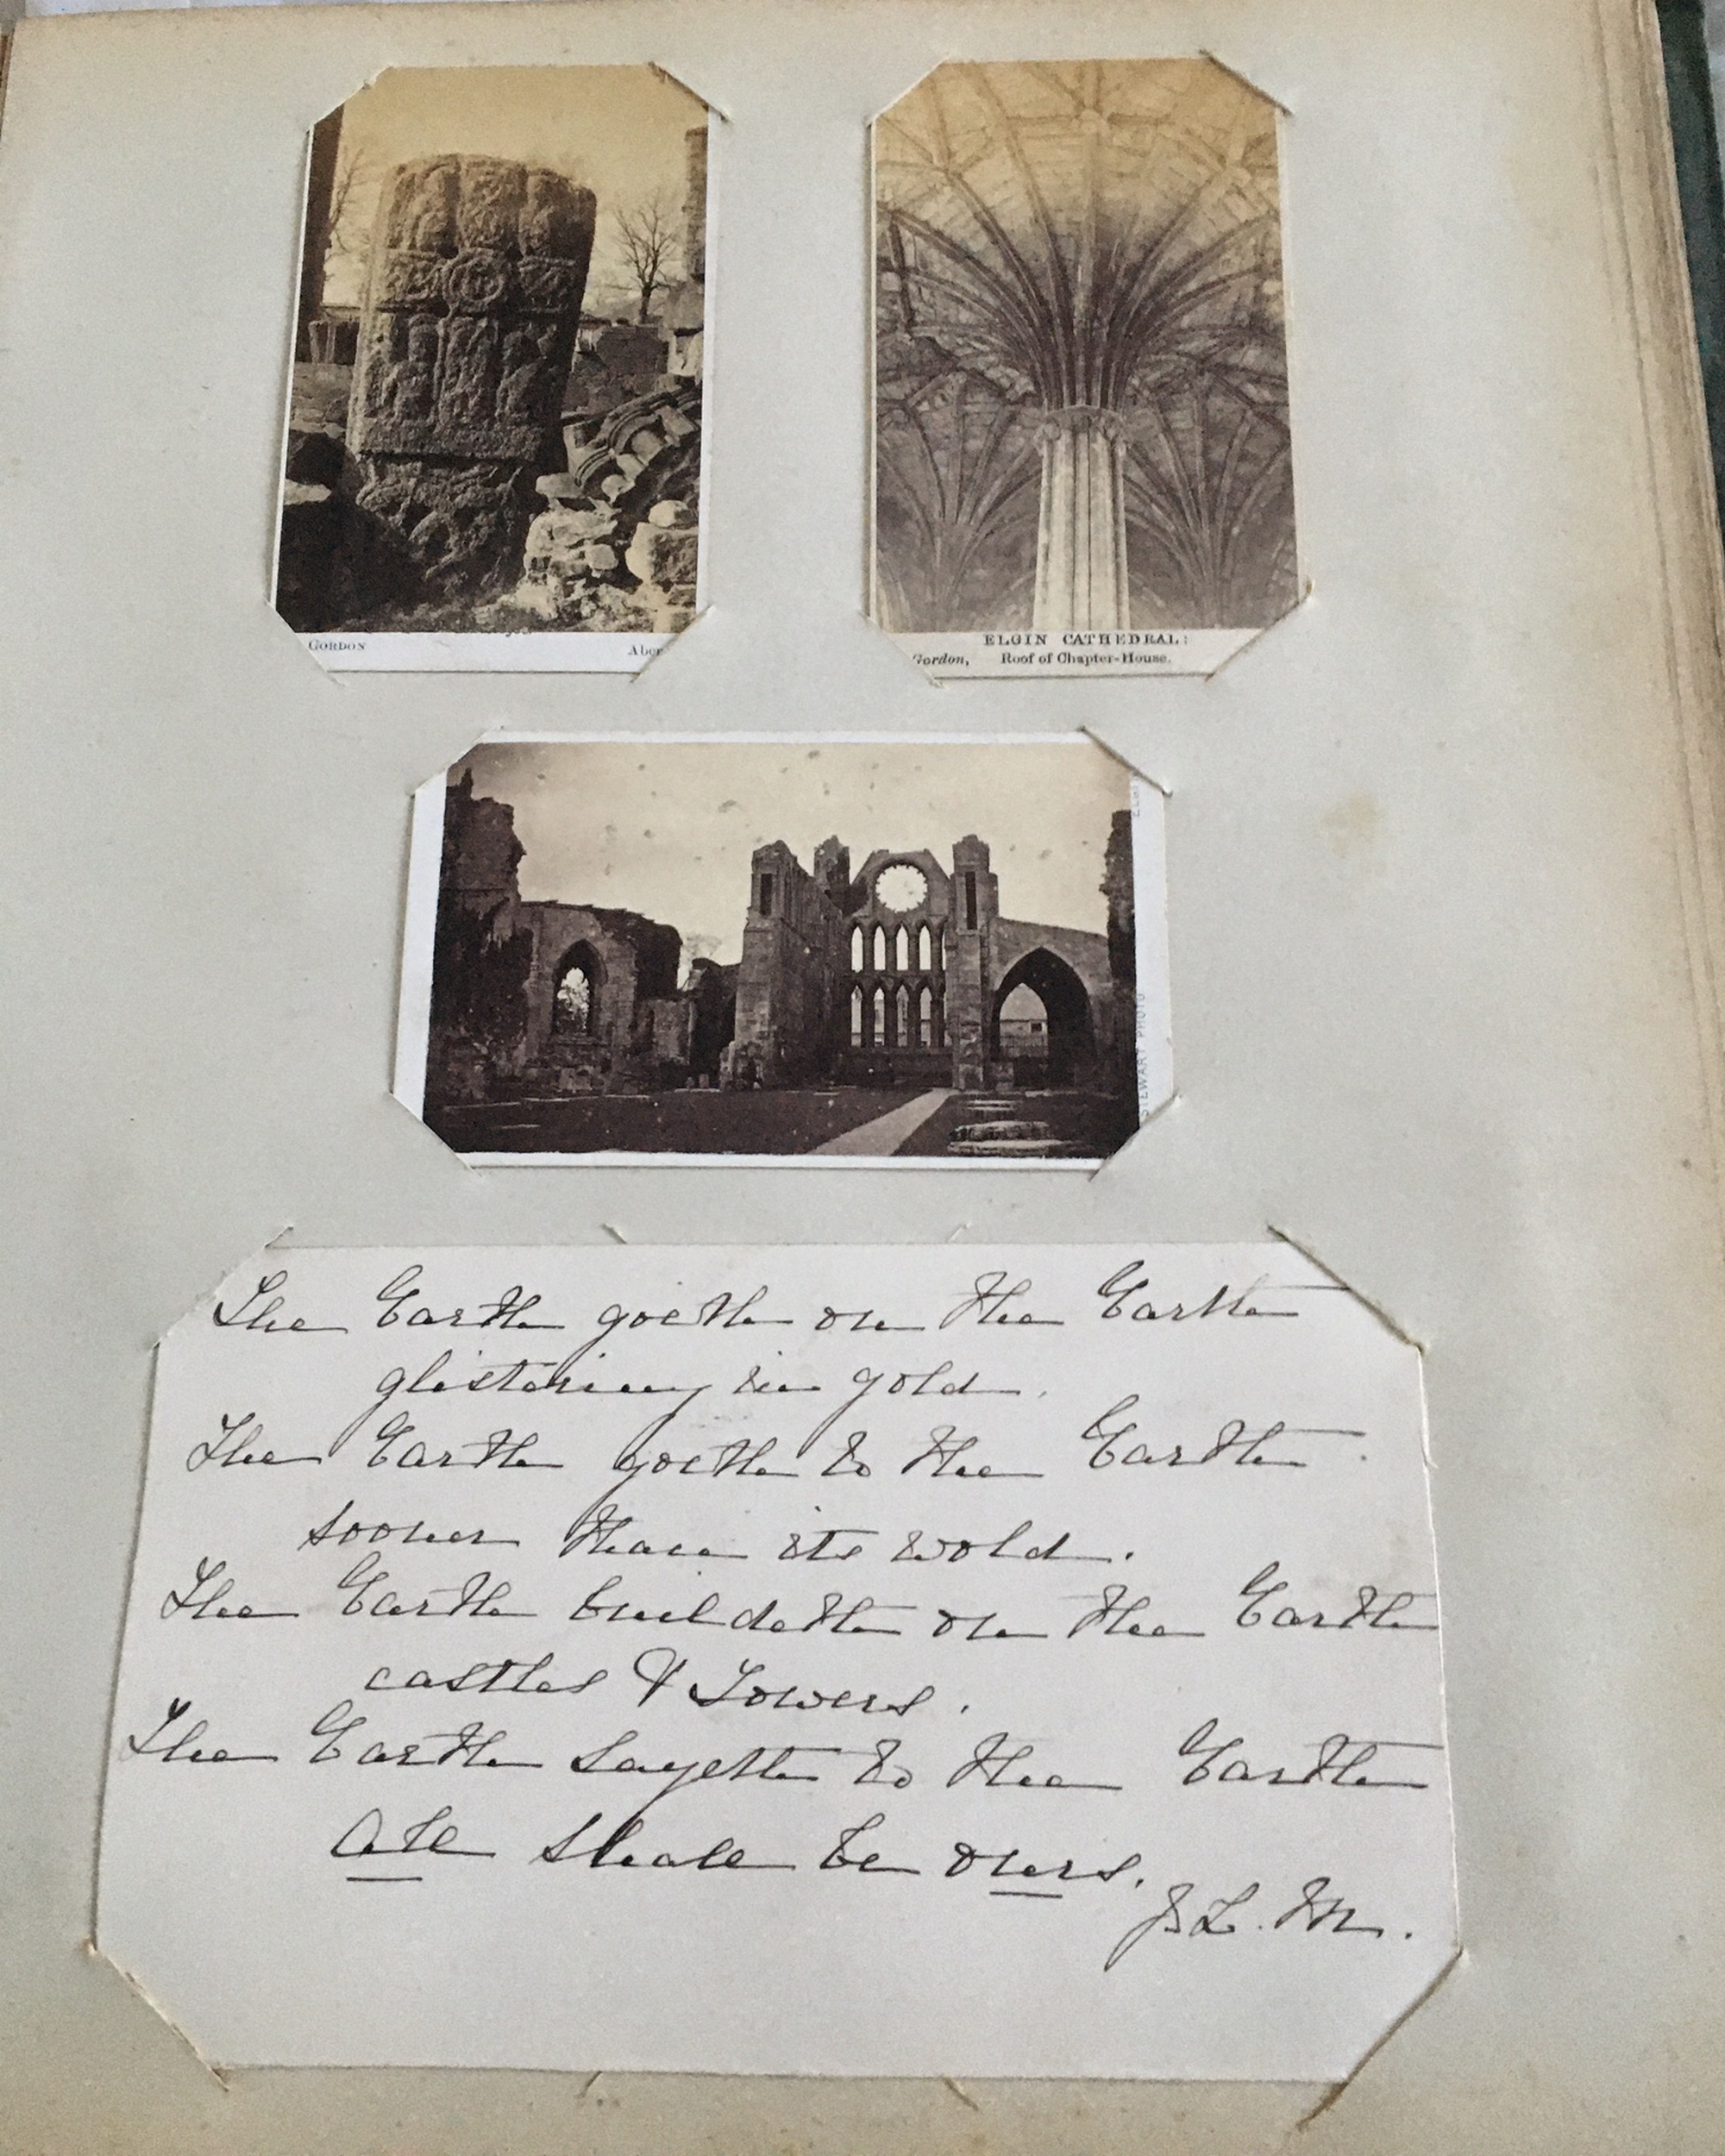 GORDON Aber
ELGIN CATHEDRAL:
Gordon, Roof of Chapter-House.
ELGI
STEWART PHOTO
The Earth goeth on the Earth
glistering in gold.
The Earth goeth to the Earth
sooner than its wold.
The Earth buildeth on the Earth
castles & Towers.
The Earth sayeth to the Earth
All shall be ours.
J. L. M.